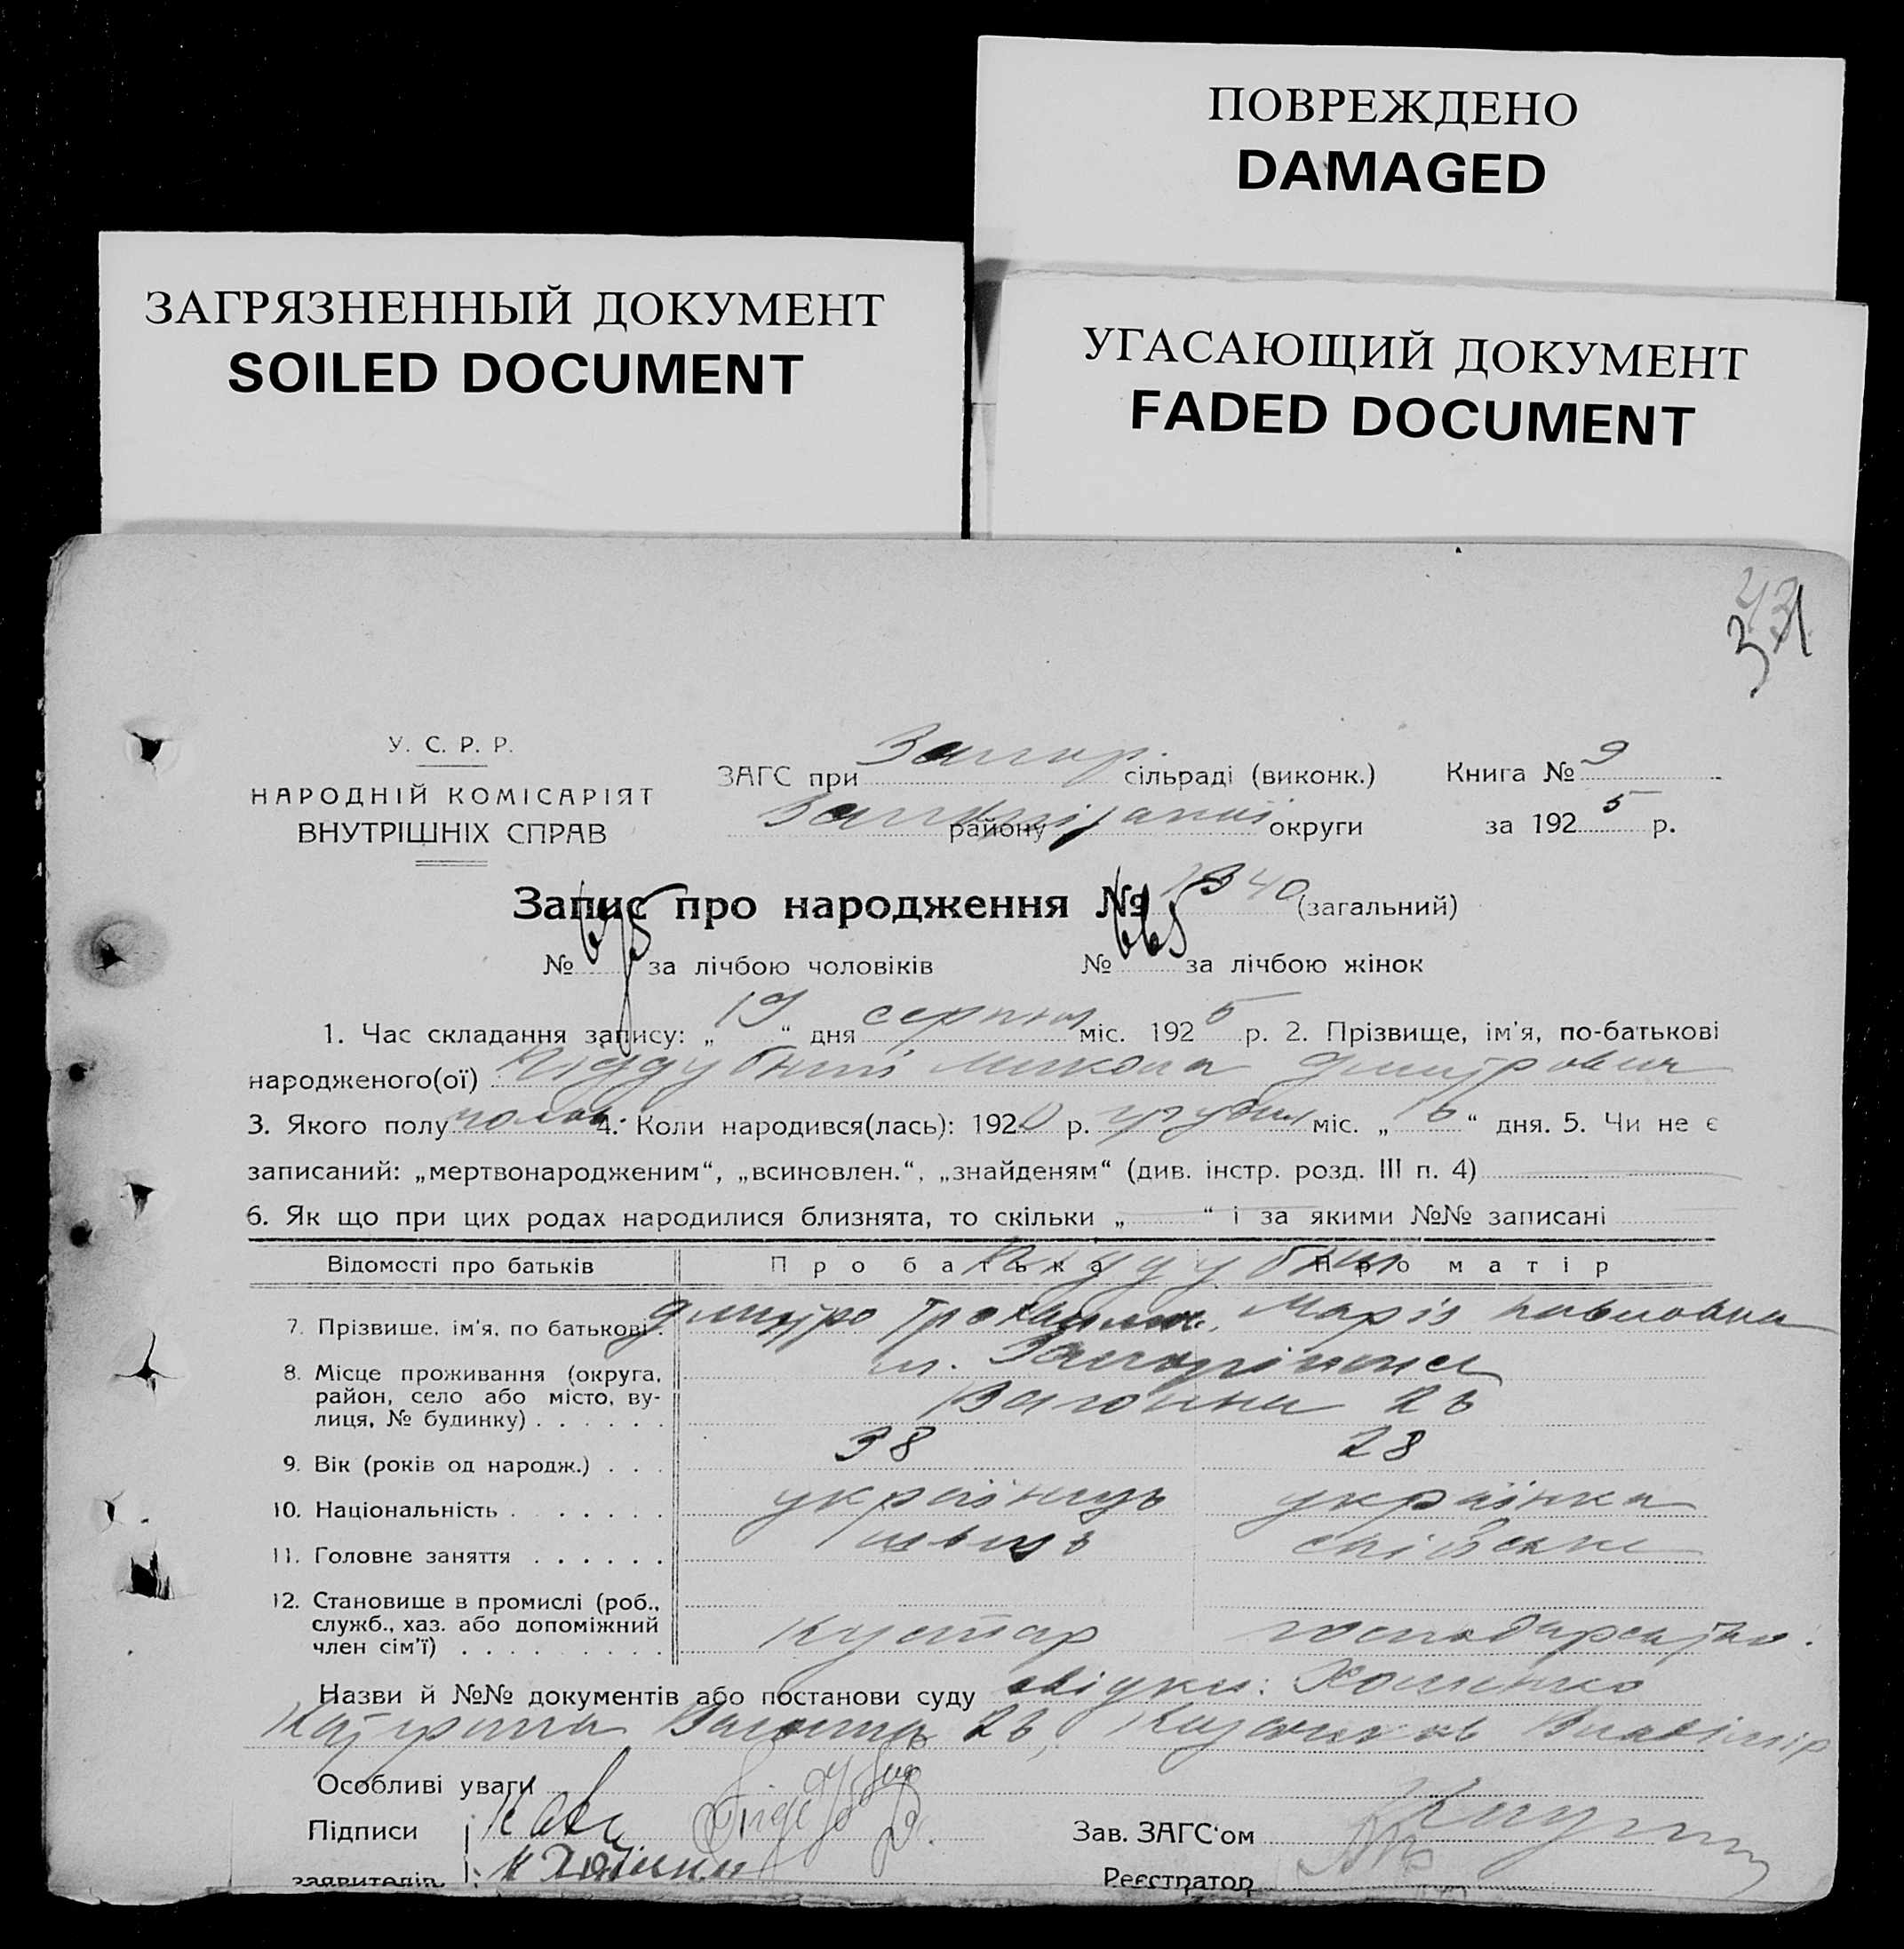 ПОВРЕЖДЕНО
DAMAGED
ЗАГРЯЗНЕННЫЙ ДОКУМЕНТ
SOILED DOCUMENT
УГАСАЮЩИЙ ДОКУМЕНТ
FADED DOCUMENT
31
У. С. Р. Р.
НАРОДНІЙ КОМІСАРІЯТ
ВНУТРІШНІХ СПРАВ
ЗАГС при Запор. сільраді (виконк.) Книга № 9
району округи за 1925 р.
Запис про народження № 1340 (загальний)
№ 675 за лічбою чоловіків № 665 за лічбою жінок
1. Час складання запису: „19“ дня серпня міс. 1925 р. 2. Прізвище, ім'я, по-батькові
народженого(ої) Піддубний Микола Дмитрович
3. Якого полу чолов. 4. Коли народився(лась): 1920 р. грудня міс. „6“ дня. 5. Чи не є
записаний: „мертвонародженим“, „всиновлен.“, „знайденям“ (див. інстр. розд. III п. 4)
6. Як що при цих родах народилися близнята, то скільки „ “ і за якими №№ записані
Відомості про батьків Про батька Про матір
Піддубни
7. Прізвише, ім'я, по батькові . Дмитро Трохимов. Марія Павловна
8. Місце проживання (округа, м. Запоріжжя
район, село або місто, ву-
лиця, № будинку) . . . . . . 26
9. Вік (років од народж.) . . . 38 28
10. Національність . . . . . . . українць українка
11. Головне заняття . . . . . . швець
12. Становище в промислі (роб.,
служб., хаз. або допоміжний кустар
член сім'ї) . . . . . . . . .
Назви й №№ документів або постанови суду свідки: Хоменко
Катерина 26, Владімір
Особливі уваги
Підписи Зав. ЗАГС'ом
заявителів. Реєстратор